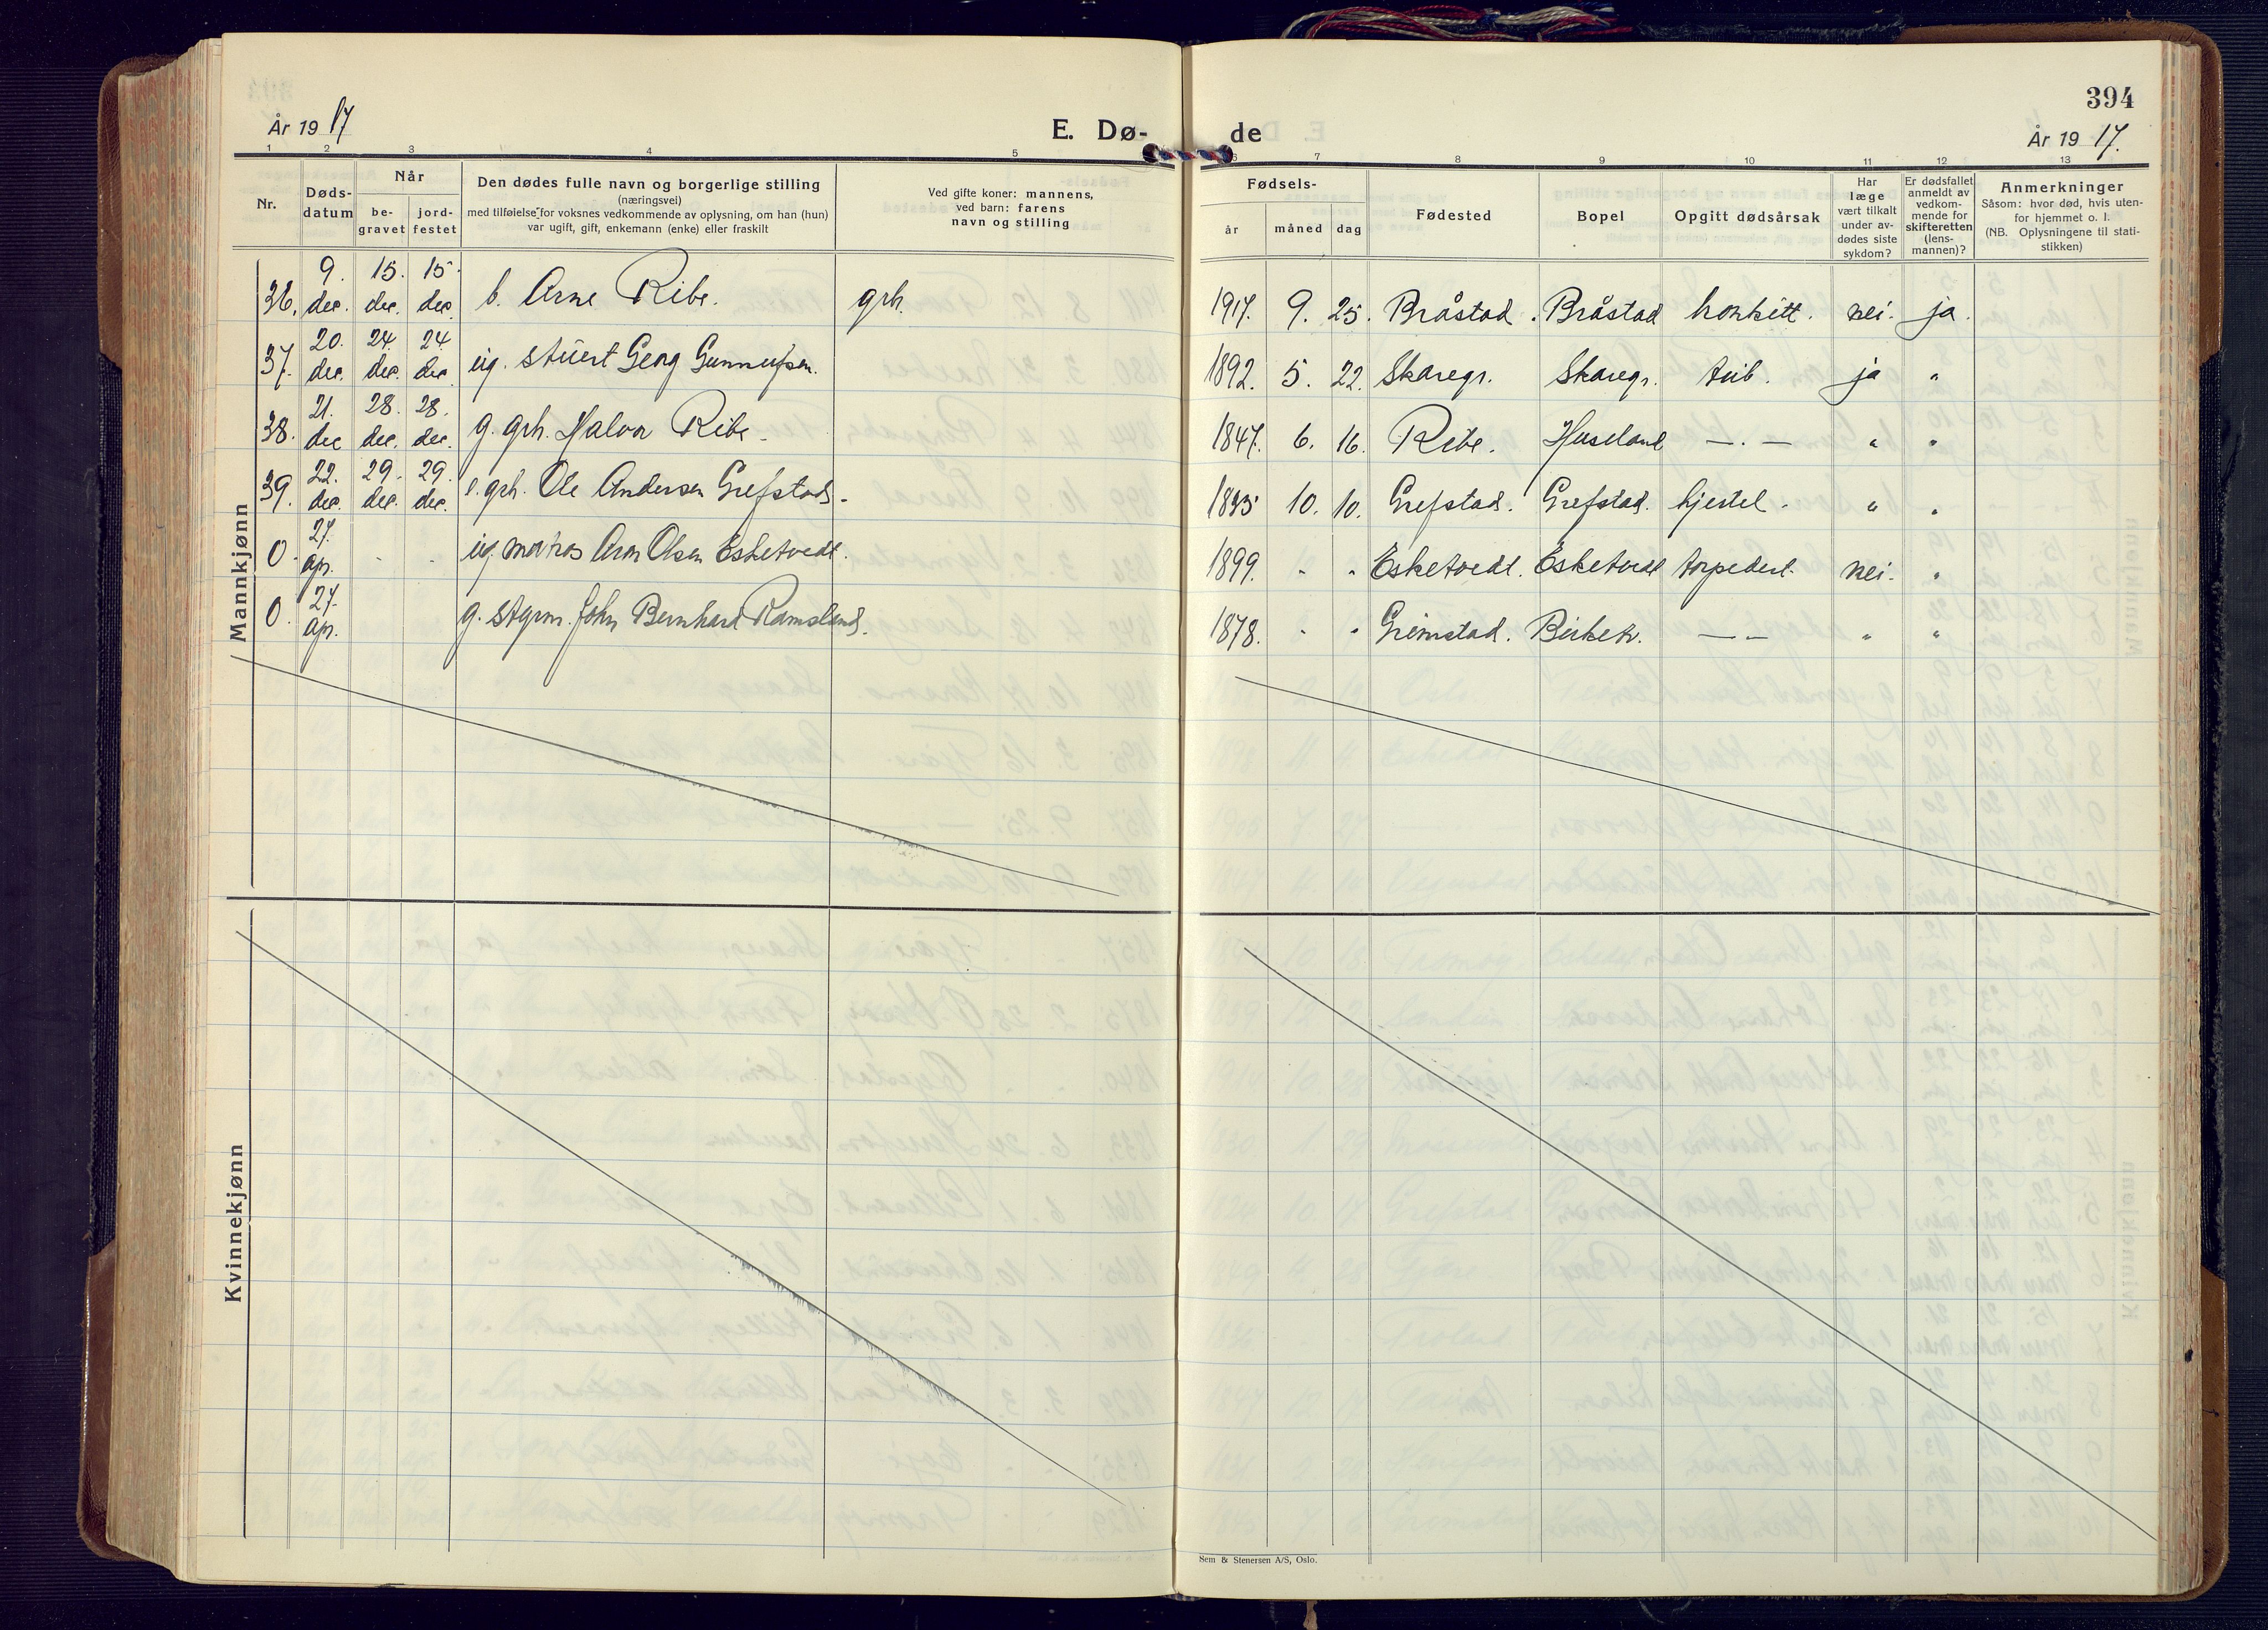 394
År 19 17
E. Dø-
de
År 19 17.
1 2 3 4 5
6 7 8 9 10 11 12 13
Nr.
Døds-
datum
Når
be-
gravet
jord-
festet
Den dødes fulle navn og borgerlige stilling
(næringsvei)
med tilføielse for voksnes vedkommende av oplysning, om han (hun)
var ugift, gift, enkemann (enke) eller fraskilt
Ved gifte koner: mannens,
ved barn: farens
navn og stilling
Fødsels-
år
måned
dag
Fødested
Bopel
Opgitt dødsårsak
Har
læge
vært tilkalt
under av-
dødes siste
sykdom?
Er dødsfallet
anmeldt av
vedkom-
mende for
skifteretten
(lens-
mannen)?
Anmerkninger
Såsom: hvor død, hvis uten-
for hjemmet o. l.
(NB. Oplysningene til stati-
stikken)
Mannkjønn
36. 9. dec. 15. dec. 15. dec. b. Arne Ribe. grh. 1917. 9. 25. Bråstad. Bråstad nei. ja.
37. 20. dec. 24. dec. 24. dec. ug. Georg Gunnufsen. 1892. 5. 22. Skaregr. Skaregr. tub. ja "
38. 21. dec 28. dec. 28. dec. g. grh. Halvor Ribe. 1847. 6. 16. Ribe. Huseland — . — " "
39. 22. dec. 29. dec. 29. dec. e. grh. Ole Andersen Grefstad. 10. 10. Grefstad. Grefstad. " "
0. 27. ap. - - ug. matros Olsen Esketvedt. 1899. - - Esketvedt. Esketvedt torpedert. nei. "
0. 27. ap. g. styrm. John Bernhard Ramsland. 1878. - - Grimstad. — — " "
Kvinnekjønn
Sem & Stenersen A/S, Oslo.